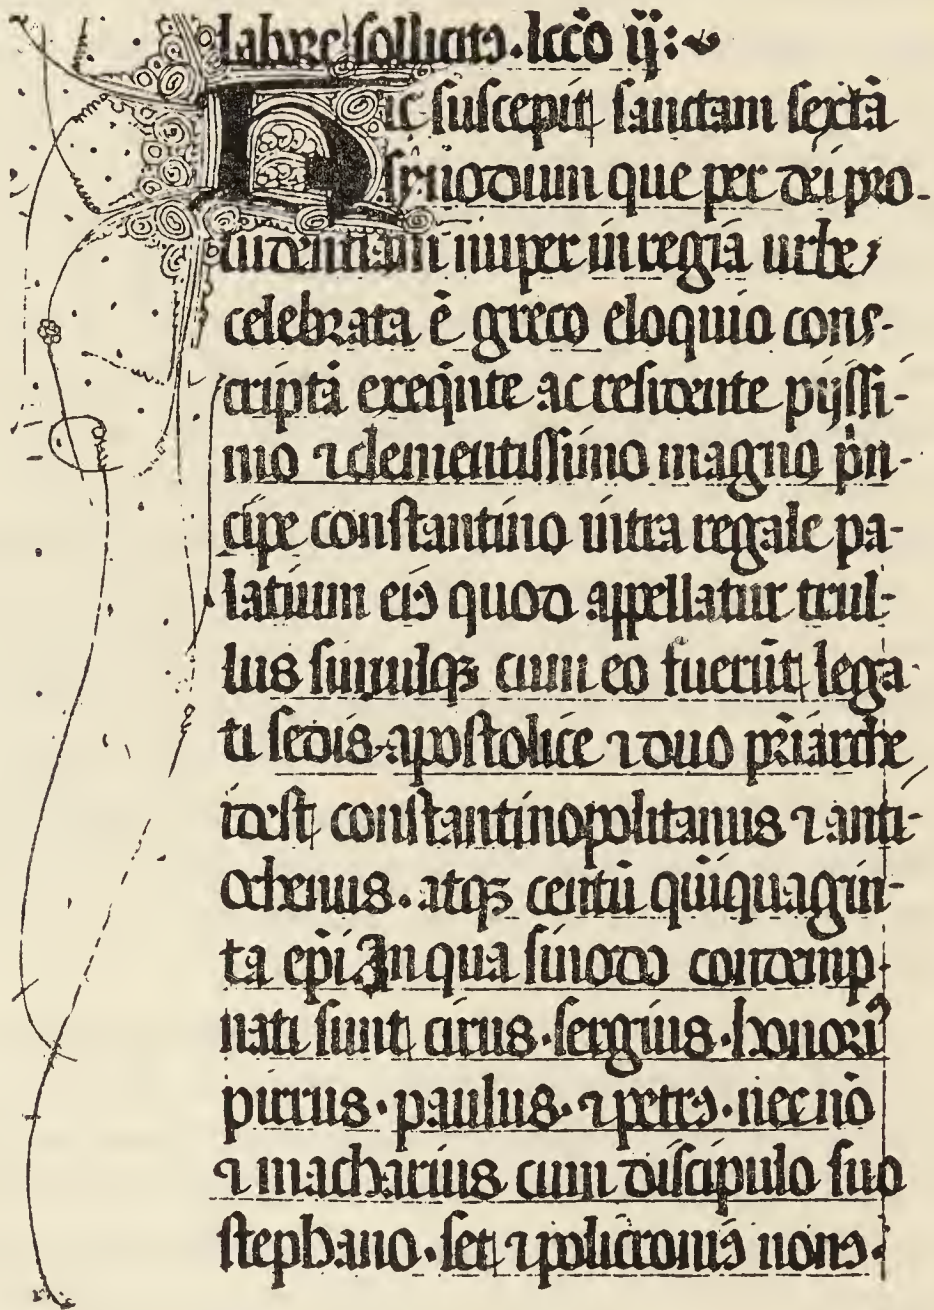 labure sollicitꝰ. lcc̄o ij:
Hic suscepit sanctam sextā
sinodum que per dei pro-
uidentiam nuper in regia urbe
celebrata ē greco eloquio cons-
criptā exeq̄nte ac residente pijssi-
mo ⁊ clementissimo magno p̄n-
cipe constantino intra regale pa-
latium eiꝰ quod appellatur trul-
lus simulqꝫ cum eo fuerūt lega-
ti sedis apostolice ⁊ duo pr̄iarche
idest constantinopolitanus ⁊ anti-
ochenus. atqꝫ centū q̄inquagin-
ta ep̄i In qua sinodo condemp-
nati sunt cirus. sergius. honoriꝰ
pirrus. paulus. ⁊ petrꝰ. nec nō
⁊ macharius cum discipulo suo
stephano. set ⁊ policroniꝰ nouꝰ.